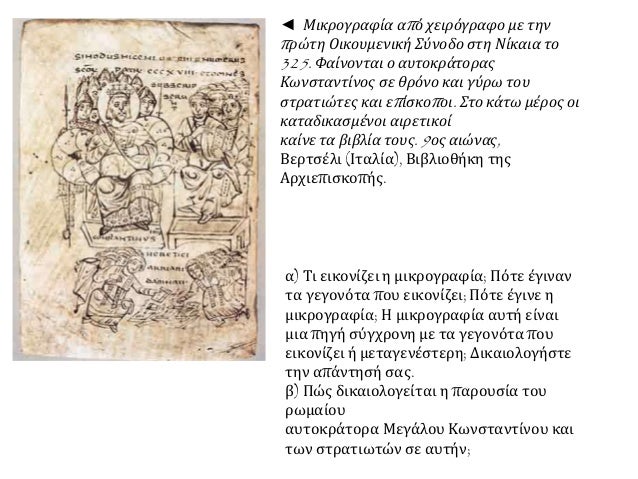 ◄ Μικρογραφία από χειρόγραφο με την
πρώτη Οικουμενική Σύνοδο στη Νίκαια το
325. Φαίνονται ο αυτοκράτορας
Κωνσταντίνος σε θρόνο και γύρω του
στρατιώτες και επίσκοποι. Στο κάτω μέρος οι
καταδικασμένοι αιρετικοί
καίνε τα βιβλία τους. 9ος αιώνας,
Βερτσέλι (Ιταλία), Βιβλιοθήκη της
Αρχιεπισκοπής.
α) Τι εικονίζει η μικρογραφία; Πότε έγιναν
τα γεγονότα που εικονίζει; Πότε έγινε η
μικρογραφία; Η μικρογραφία αυτή είναι
μια πηγή σύγχρονη με τα γεγονότα που
εικονίζει ή μεταγενέστερη; Δικαιολογήστε
την απάντησή σας.
β) Πώς δικαιολογείται η παρουσία του
ρωμαίου
αυτοκράτορα Μεγάλου Κωνσταντίνου και
των στρατιωτών σε αυτήν;
HERETICI
ARRIANI